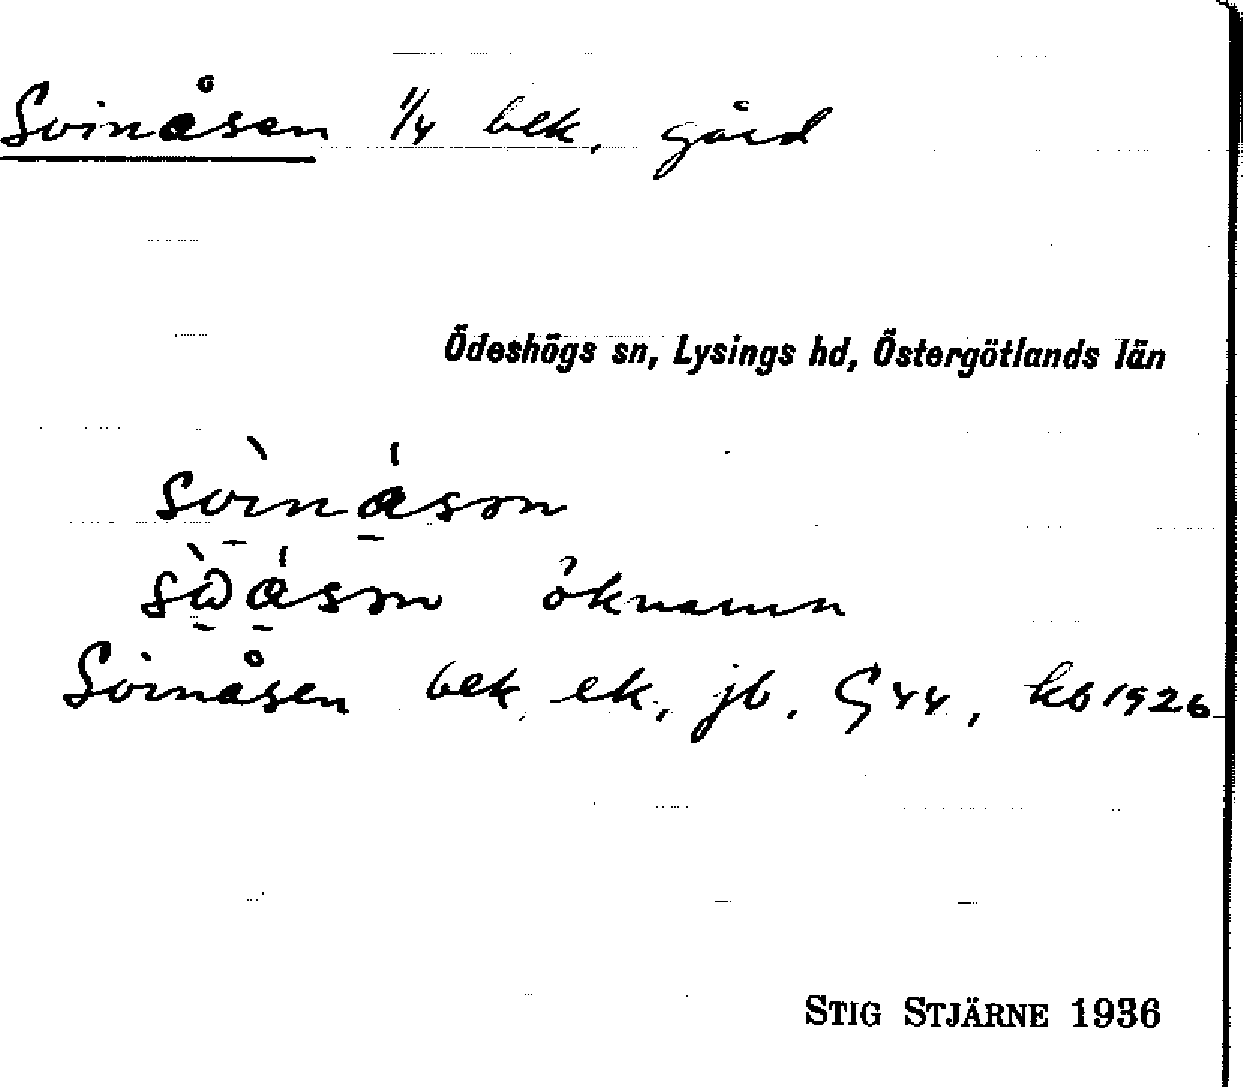 Svinåsen 1/4 bek, gård
Ödeshögs sn, Lysings hd, Östergötlands län
öknamn
Svinåsen bek ek, jb, G44, kb 1926
STIG STJÄRNE 1936